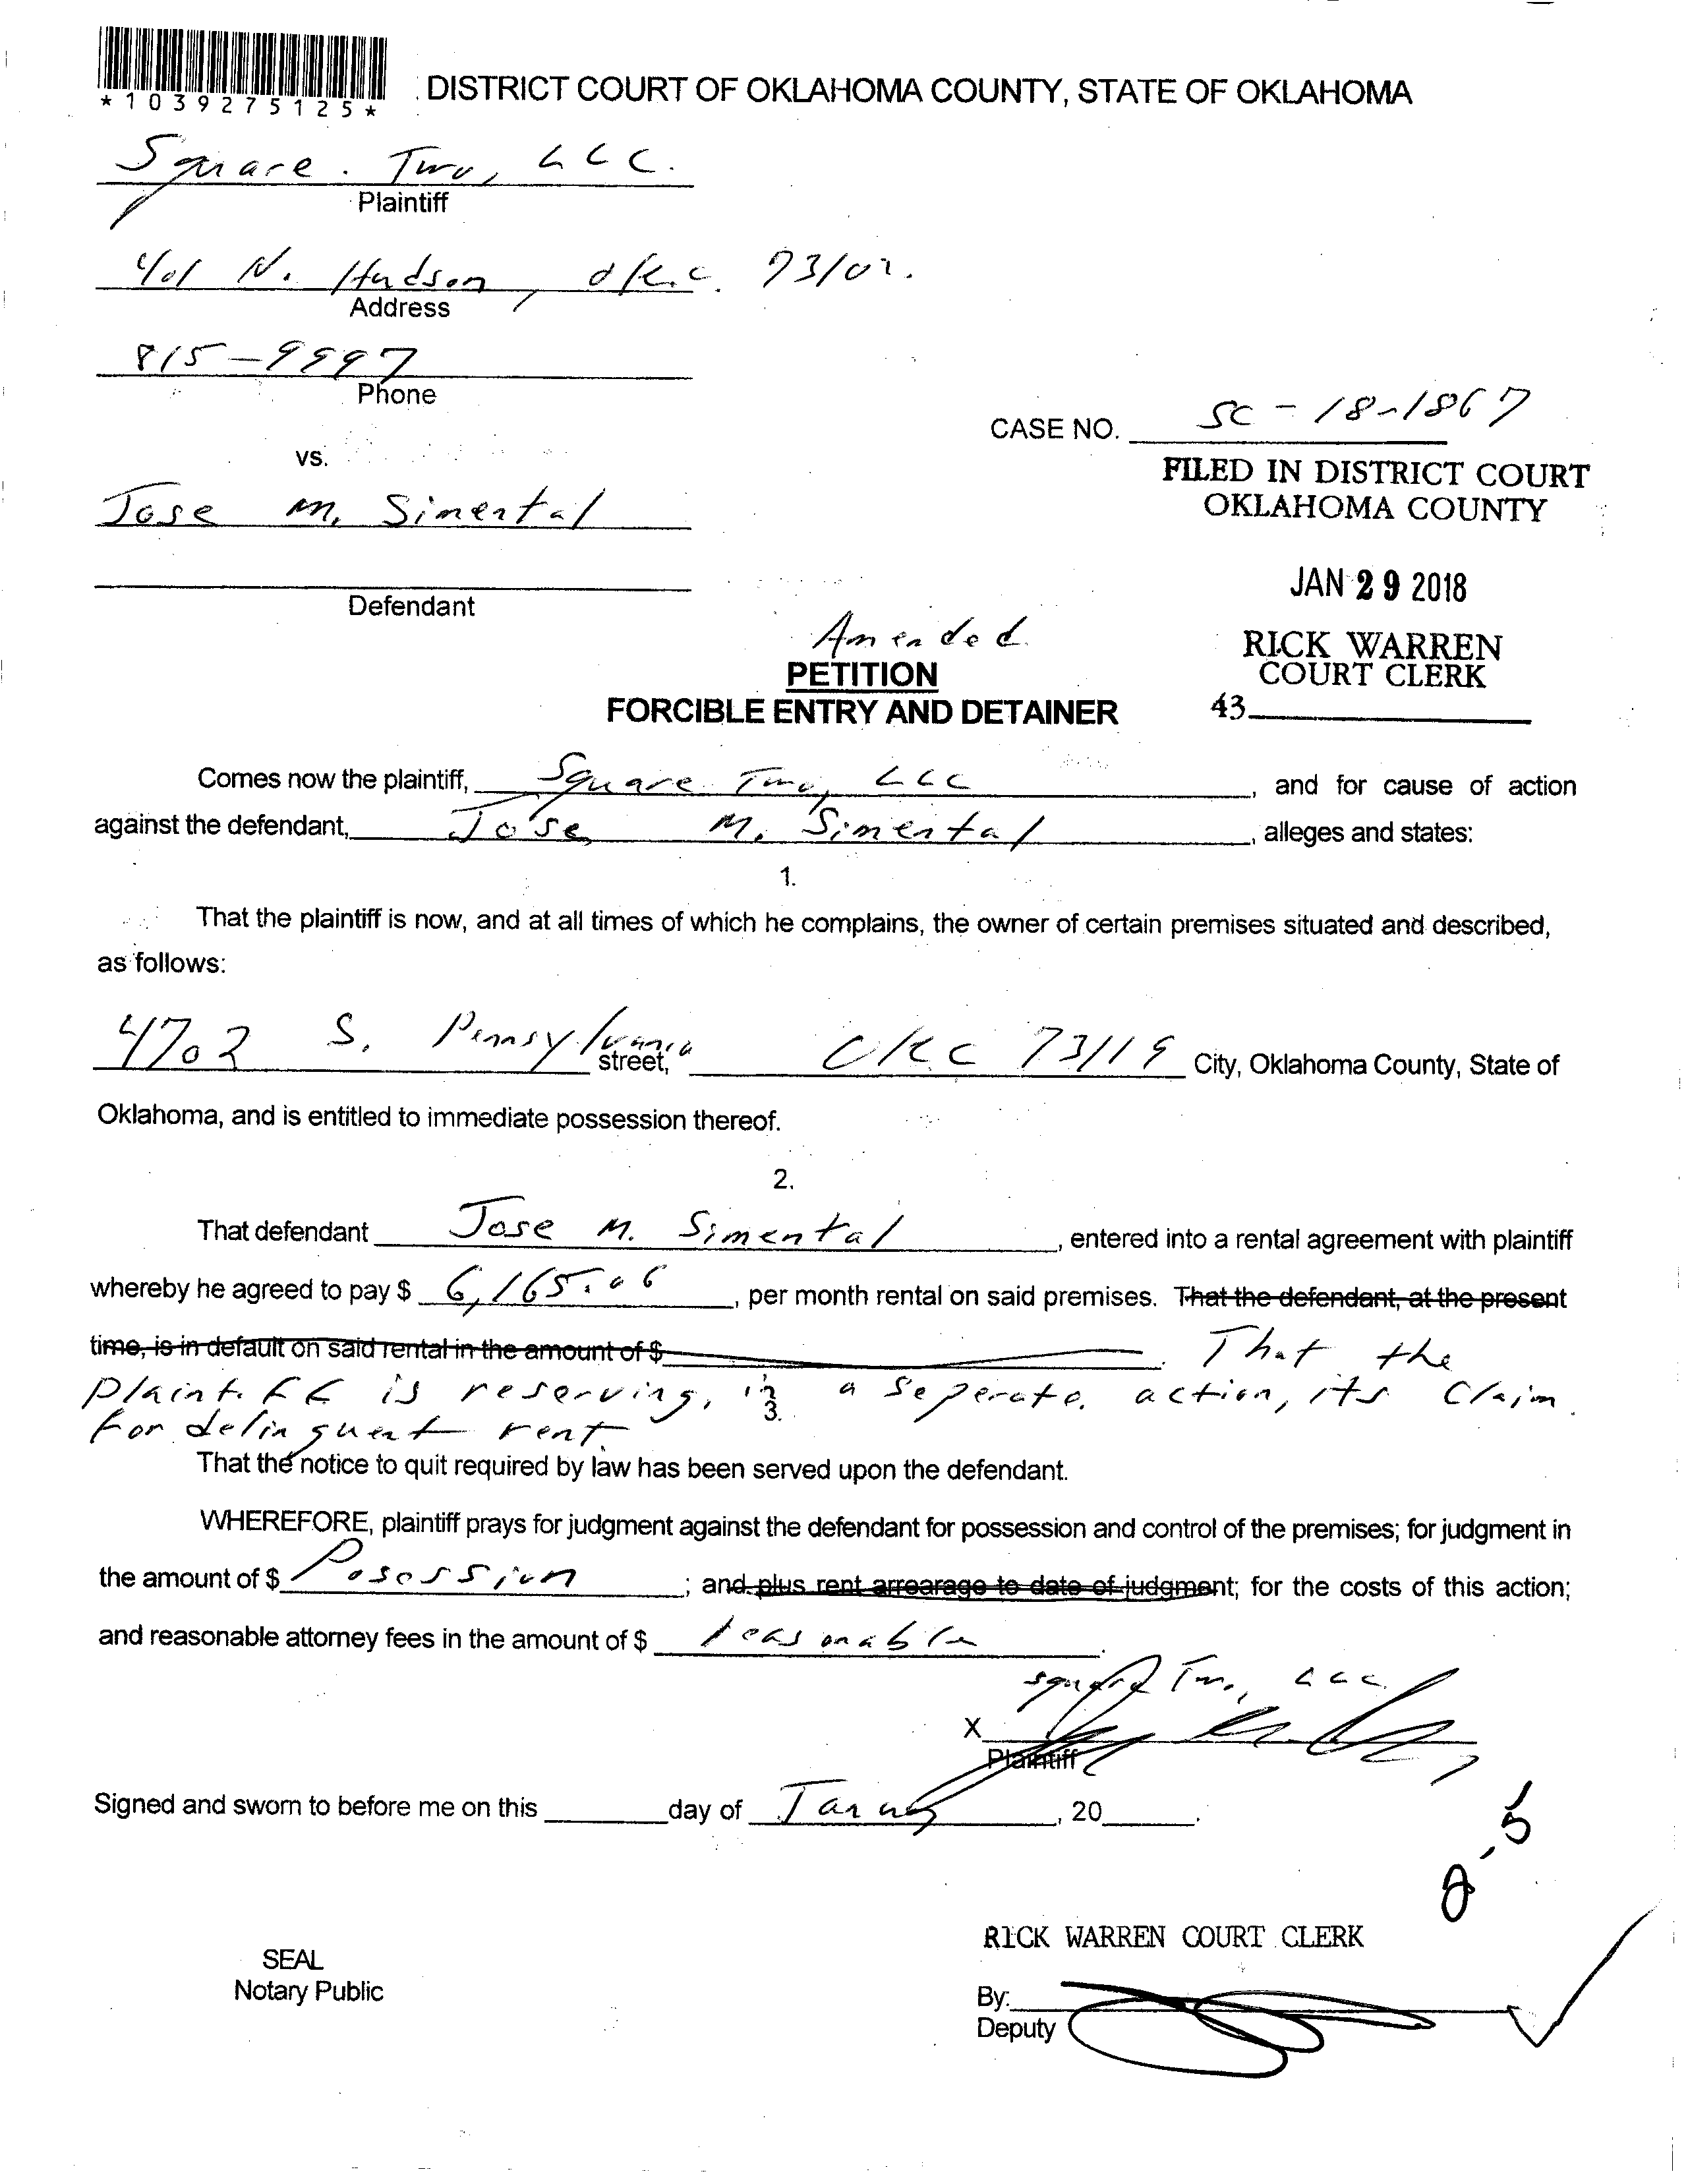 *1039275125*
DISTRICT COURT OF OKLAHOMA COUNTY, STATE OF OKLAHOMA
Square Two, LLC.
Plaintiff
401 N. Hudson, O.K.C. 73102.
Address
815-9997
Phone
CASE NO. SC-18-1867
vs.
FILED IN DISTRICT COURT
OKLAHOMA COUNTY
Jose M. Simental
JAN 29 2018
Defendant
Amended
RICK WARREN
COURT CLERK
PETITION
FORCIBLE ENTRY AND DETAINER
43
Comes now the plaintiff, Square Two, LLC, and for cause of action
against the defendant, Jose M. Simental, alleges and states:
1.
That the plaintiff is now, and at all times of which he complains, the owner of certain premises situated and described,
as follows:
4702 S. Pennsylvania street, OKC 73119 City, Oklahoma County, State of
Oklahoma, and is entitled to immediate possession thereof.
2.
That defendant Jose M. Simental, entered into a rental agreement with plaintiff
whereby he agreed to pay $ 6,165.06, per month rental on said premises. That the defendant, at the present
time, is in default on said rental in the amount of $. That the
plaintiff is reserving, in a seperate action, its claim
3.
for delinquent rent
That the notice to quit required by law has been served upon the defendant.
WHEREFORE, plaintiff prays for judgment against the defendant for possession and control of the premises; for judgment in
the amount of $ Posession; and plus rent arrearage to date of judgment; for the costs of this action;
and reasonable attorney fees in the amount of $ reasonable.
Square Two, LLC
X
Plaintiff
Signed and sworn to before me on this day of January, 20.
RICK WARREN COURT CLERK
SEAL
Notary Public
By:
Deputy